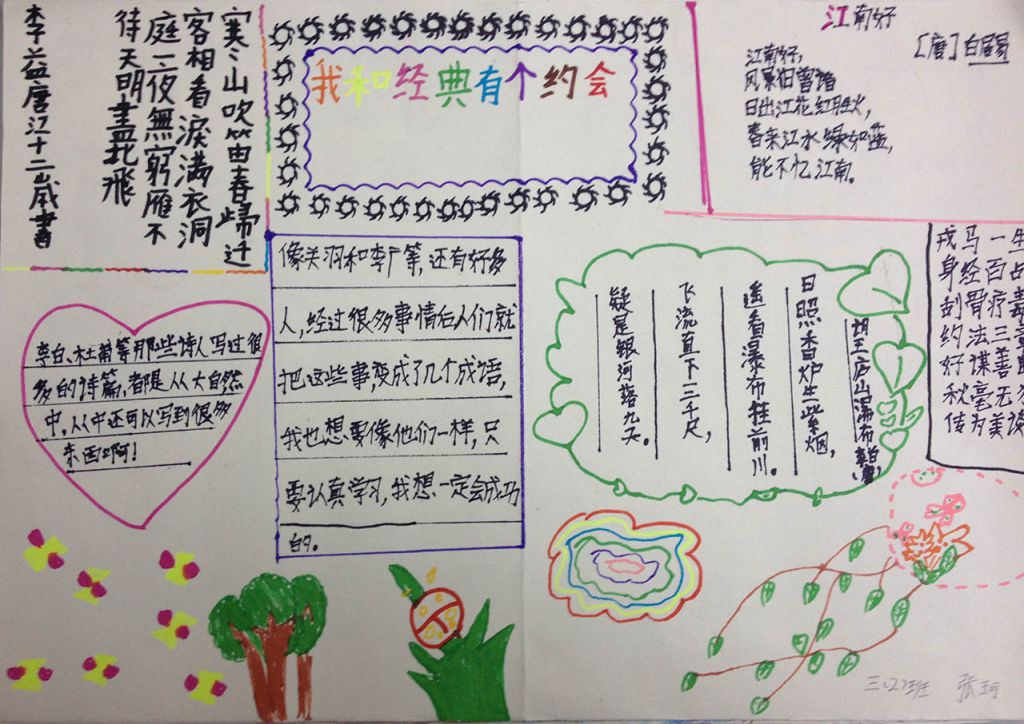 寒山吹笛春歸迁
客相看淚满衣洞
庭一夜無窮雁不
待天明盡北飛
李益唐江十二歲書
我和经典有个约会
江南好
[唐]白居易
江南好,
风景旧曾谙
日出江花红胜火,
春来江水绿如蓝,
能不忆江南。
像关羽和李广等,还有好多
人,经过很多事情后人们就
把这些事,变成了几个成语,
我也想要像他们一样,只
要认真学习,我想一定会成功
的。
李白、杜甫等那些诗人写过很
多的诗篇,都是从大自然
中,从中还可以写到很多
东西啊!
望庐山瀑布
日照香炉生紫烟,
遥看瀑布挂前川。
飞流直下三千尺,
疑是银河落九天。
戎马一生
身经百
刮骨疗毒
约法三
好谋善
秋毫无
传为美谈
三(2)班 张珂